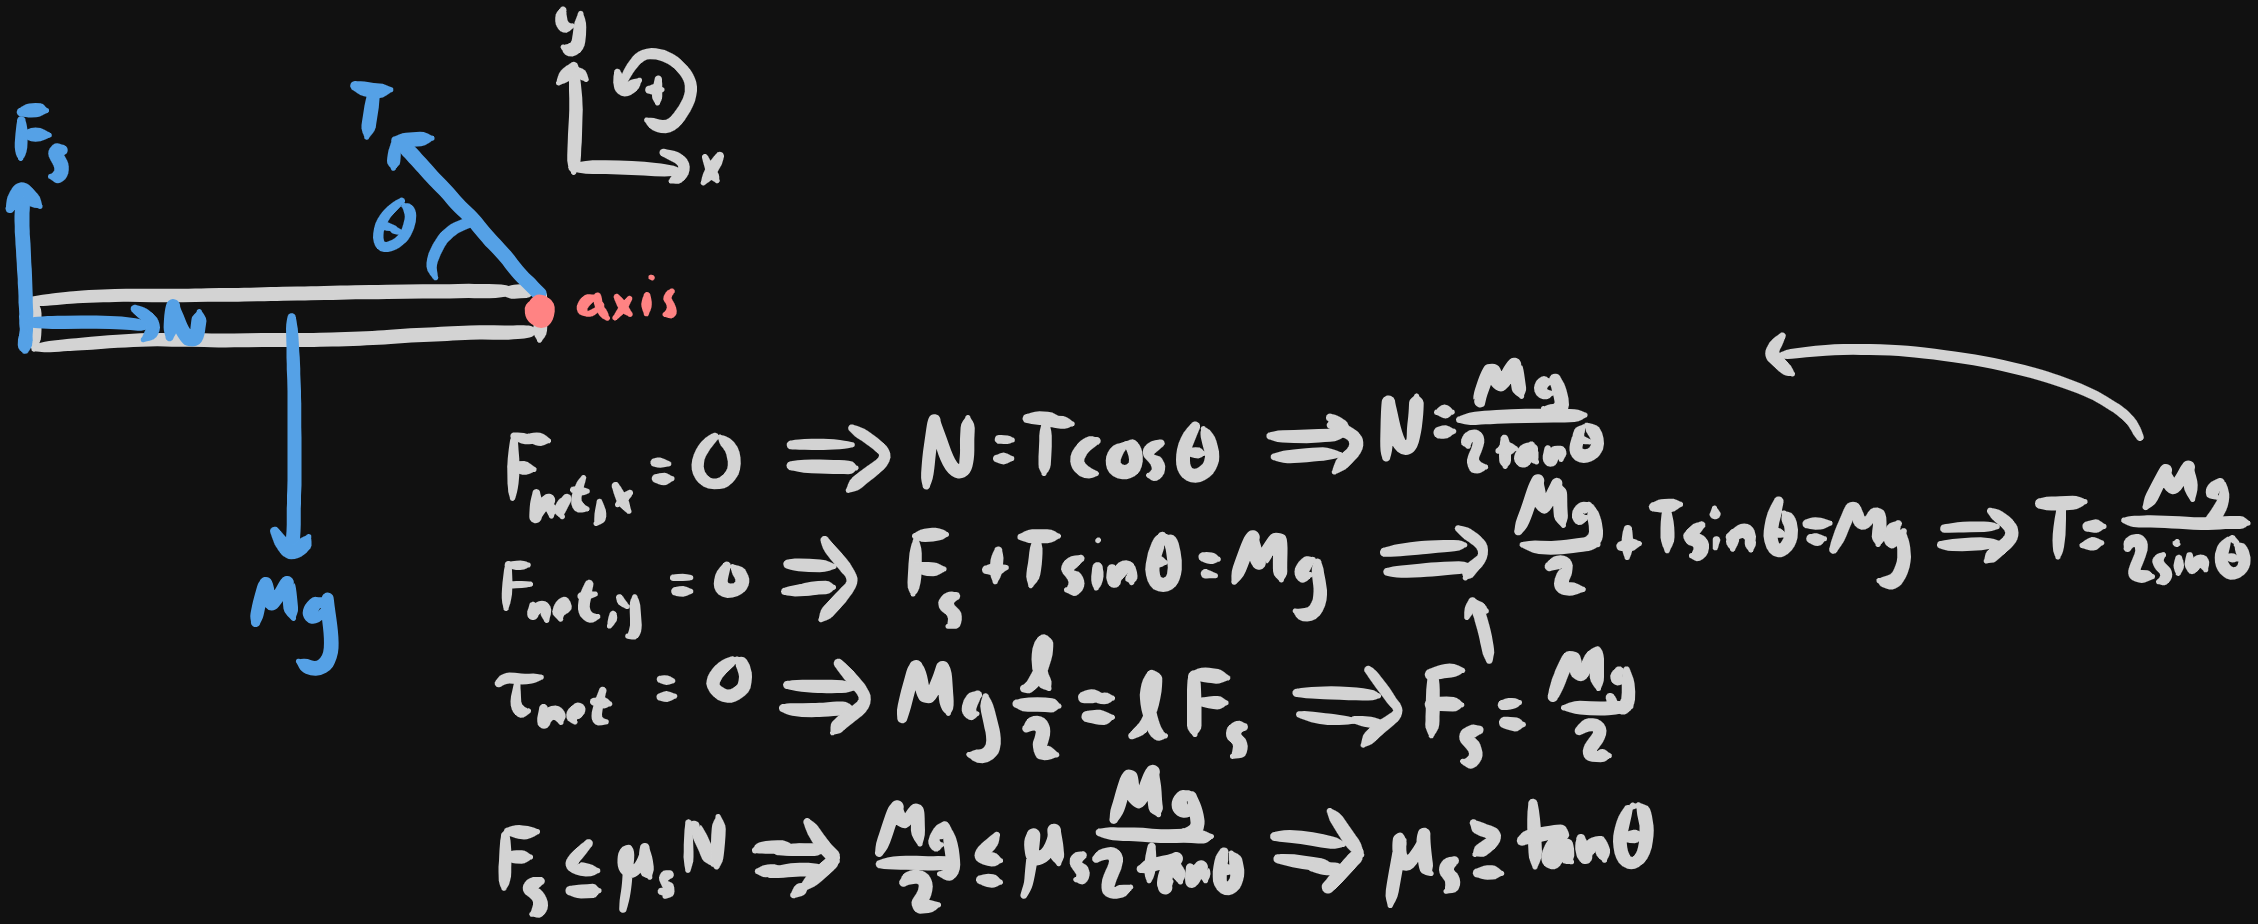 y
+
x
T
F_s
θ
N
axis
Mg
F_net,x = 0 ⇒ N = Tcosθ ⇒ N = Mg/(2tanθ)
F_net,y = 0 ⇒ F_s + Tsinθ = Mg ⇒ Mg/2 + Tsinθ = Mg ⇒ T = Mg/(2sinθ)
τ_net = 0 ⇒ Mg l/2 = l F_s ⇒ F_s = Mg/2
F_s ≤ μ_s N ⇒ Mg/2 ≤ μ_s Mg/(2tanθ) ⇒ μ_s ≥ tanθ